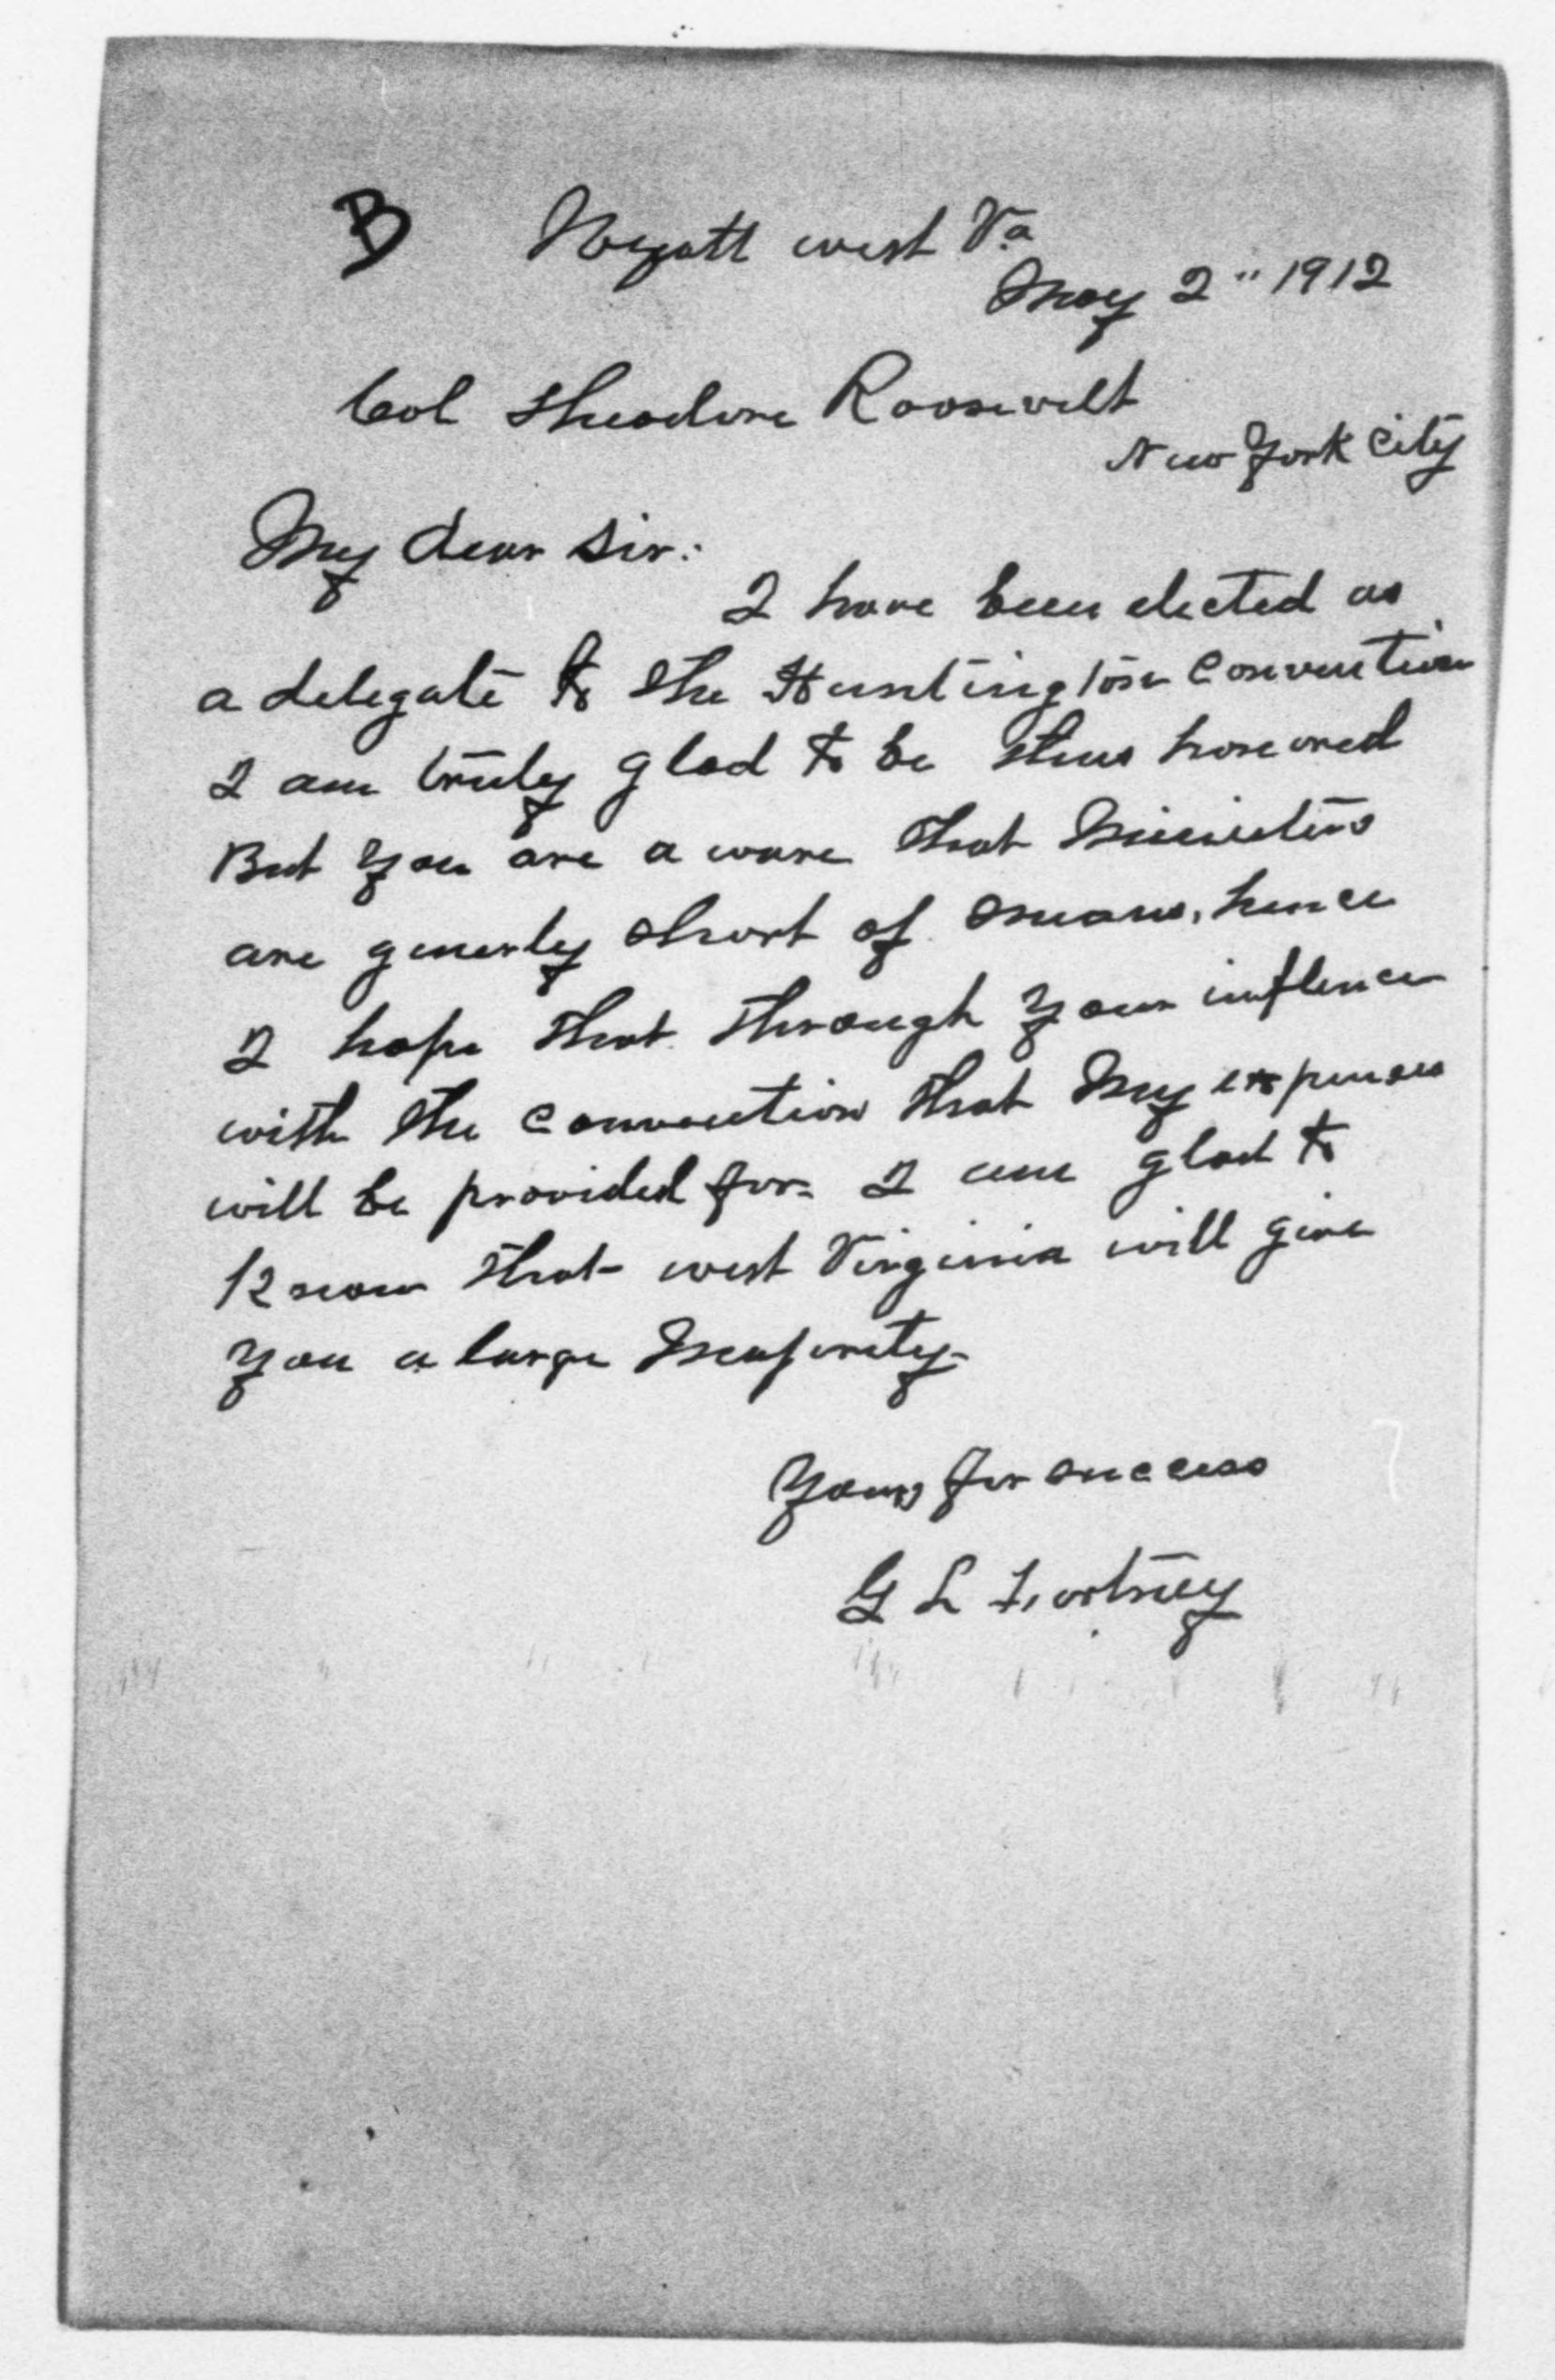 B Wyatt west Va
May 2" 1912
Col Theodore Roosevelt
New York City
My dear Sir:
I have been elected as
a delegate to the Huntington Convention
I am truly glad to be thus honored
But you are a ware that Ministers
are generly short of means, hence
I hope that through your inflence
with the Convention that My expenses
will be provided for. I am glad to
Know that west Virginia will give
you a large Majority.
Yours for success
G L Fortney